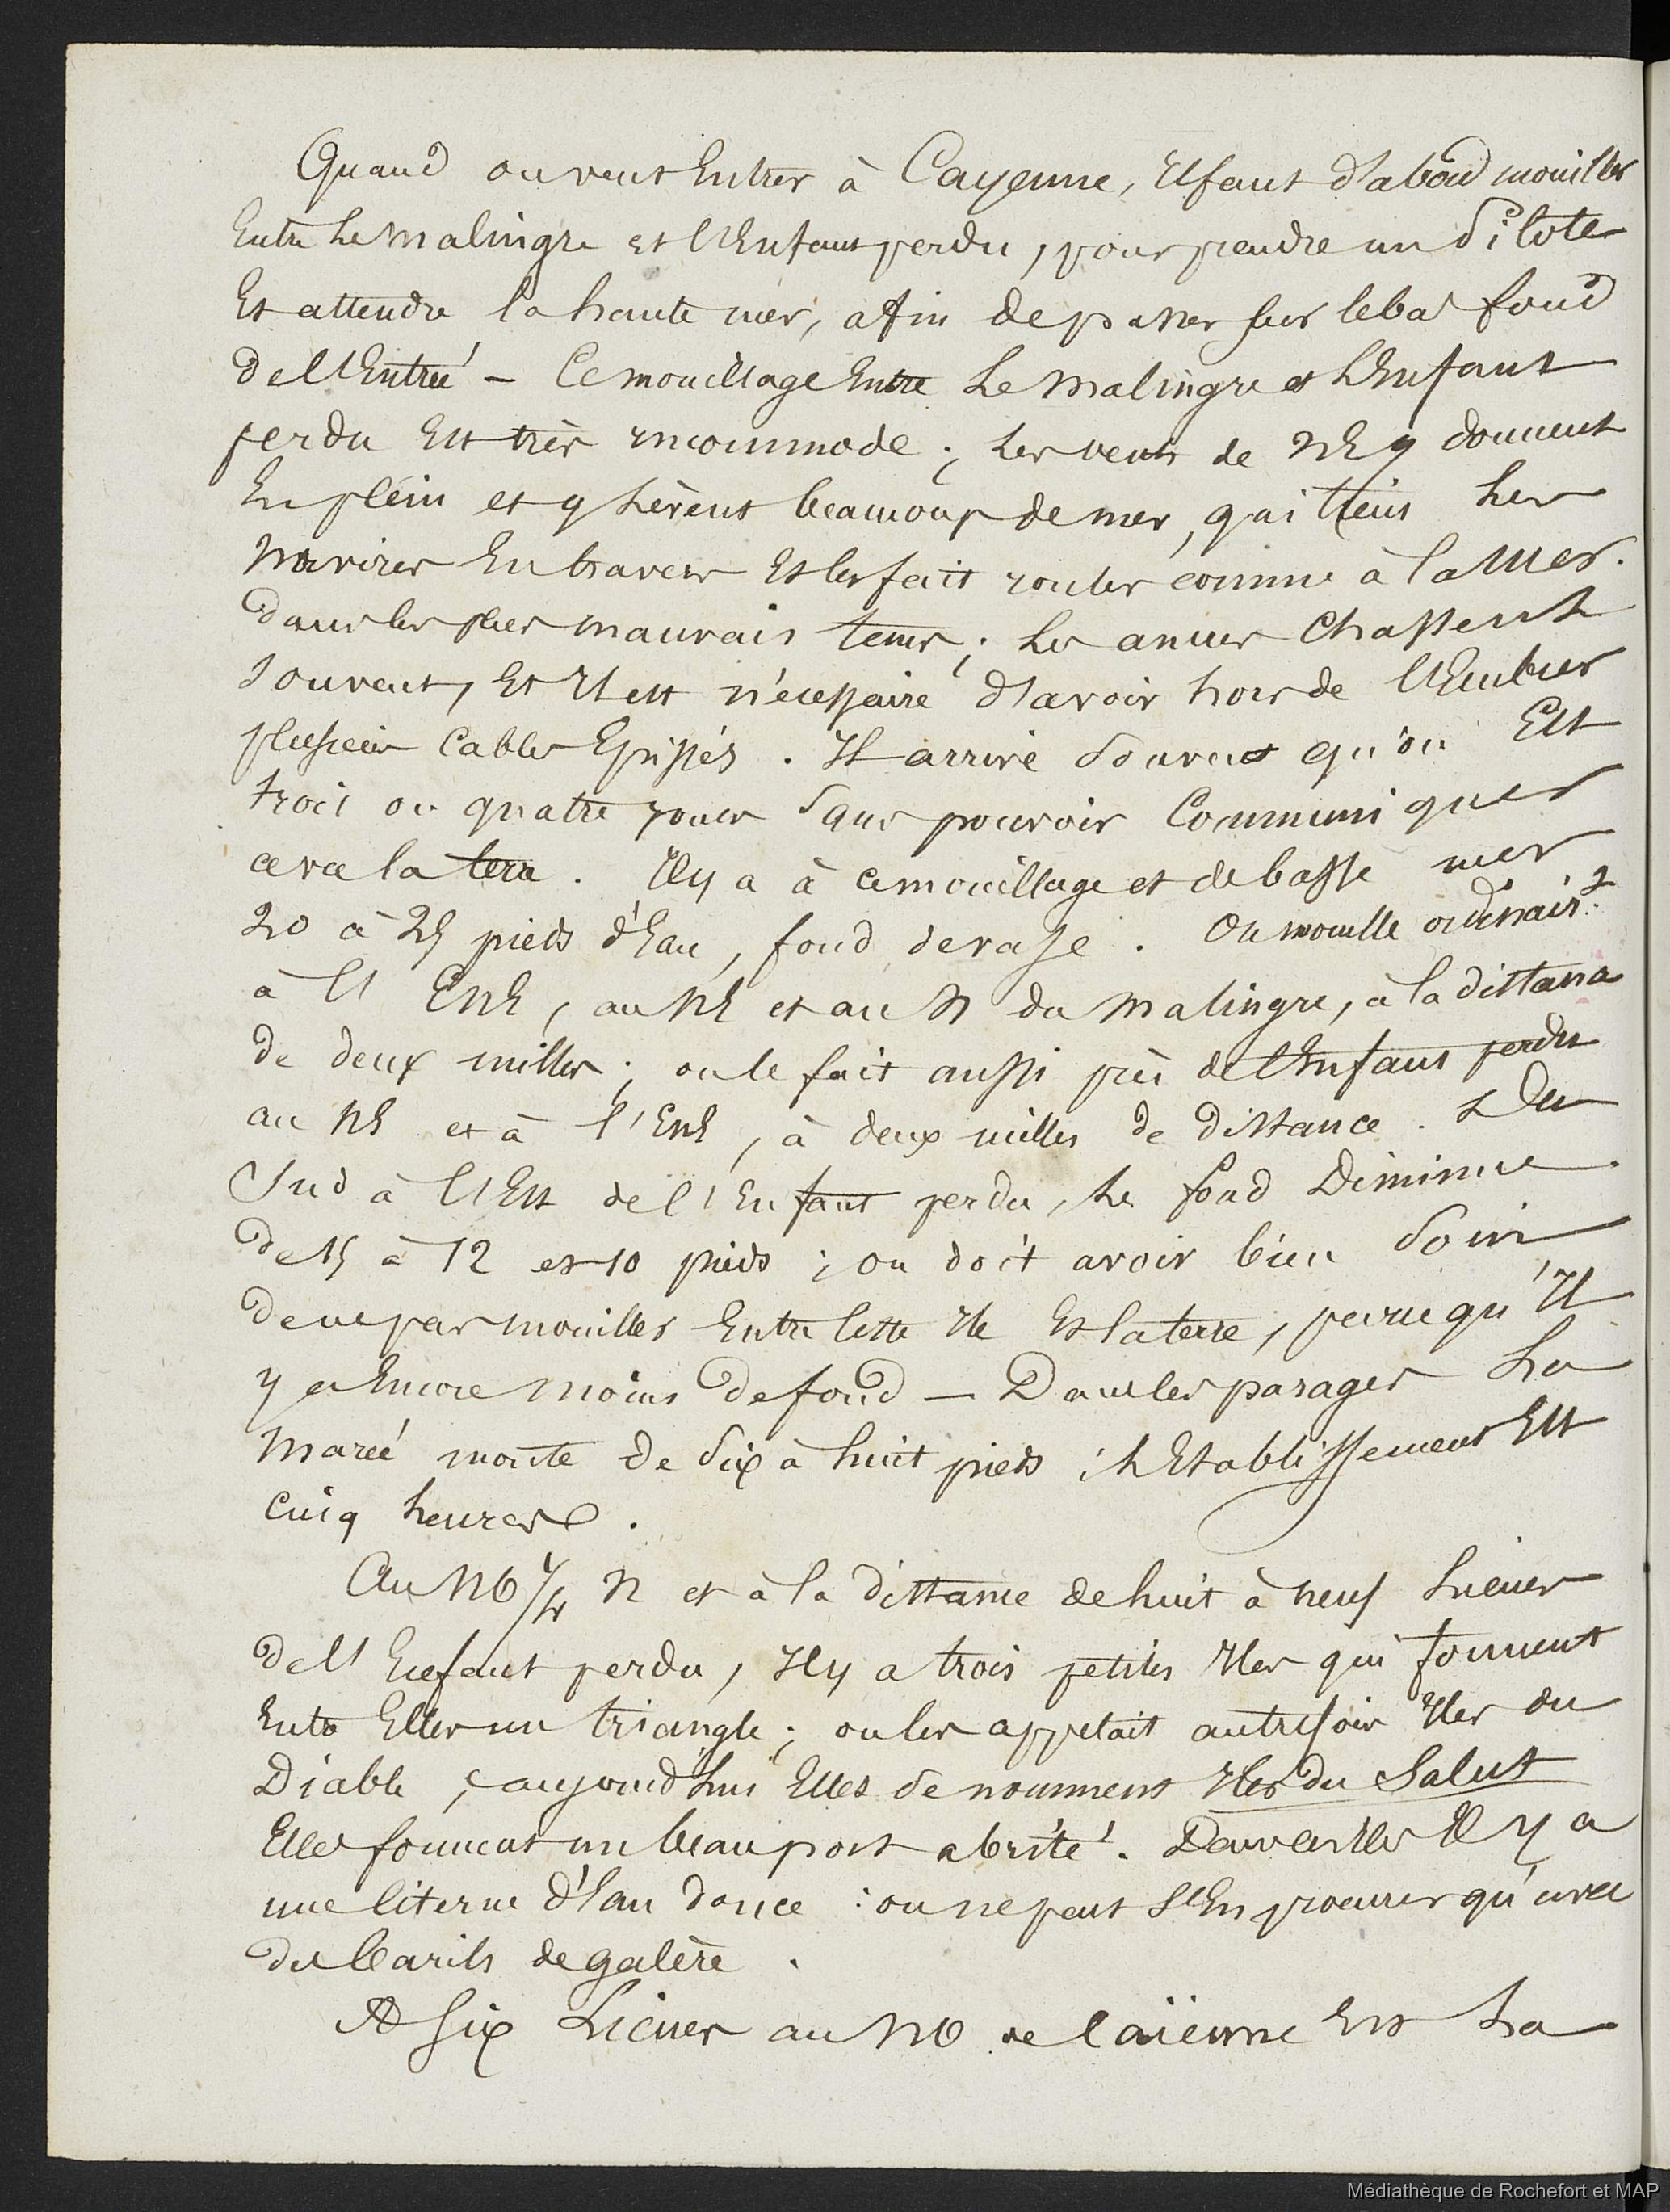 Quand on veut Entrer à Cayenne, Il faut d'abord mouiller
Entre Le Malingre et l'Enfant perdu, pour prendre un Pilote
Et attendre la haute mer, afin de passer sur le bas fond
de l'Entrée – Ce mouillage Entre Le Malingre et L'Enfant
perdu Est très incommode ; Les vents de NE y donnent
En plein et y Lèvent beaucoup de mer, qui tient Les
Navires En travers Et les fait rouler comme à la Mer.
dans les plus mauvais tems ; Les ancres Chassent
Souvent, Et Il est nécessaire d'avoir hors de l'Ecubier
plusieurs Cables Epissés. Il arrive Souvent qu'on Est
trois ou quatre jours Sans pouvoir Communiquer
avec la terre. Il y a à ce mouillage et de basse mer
20 à 25 pieds d'Eau, fond de vase. On mouille ordinairt
à l'ENE, au NE et au N du Malingre, à la distance
de deux milles ; on le fait aussi près de l'Enfant perdu
au NE et à l'ENE, à deux milles de distance. Du
Sud à l'Est de l'Enfant perdu, Le fond Diminue
de 15 à 12 et 10 pieds ; on doit avoir bien Soin
de ne pas mouiller Entre Cette Ile Et la terre, parce qu'Il
y a Encore moins de fond – Dans les parages La
Marée monte de Six à huit pieds ; L'Etablissement Est
Cinq heures.
Au NO 1/4 N et à la distance de huit à neuf Lieues
de l'Enfant perdu, Il y a trois petites Iles qui forment
Entre Elles un triangle ; on les appelait autrefois Iles du
Diable, aujourd'hui Elles se nomment Iles du Salut
Elles forment un beau port abrité. Dans ces Iles Il y a
une Citerne d'Eau douce : on ne peut S'En procurer qu'avec
des Barils de galère.
A Six Lieues au NO de Caïenne Est La